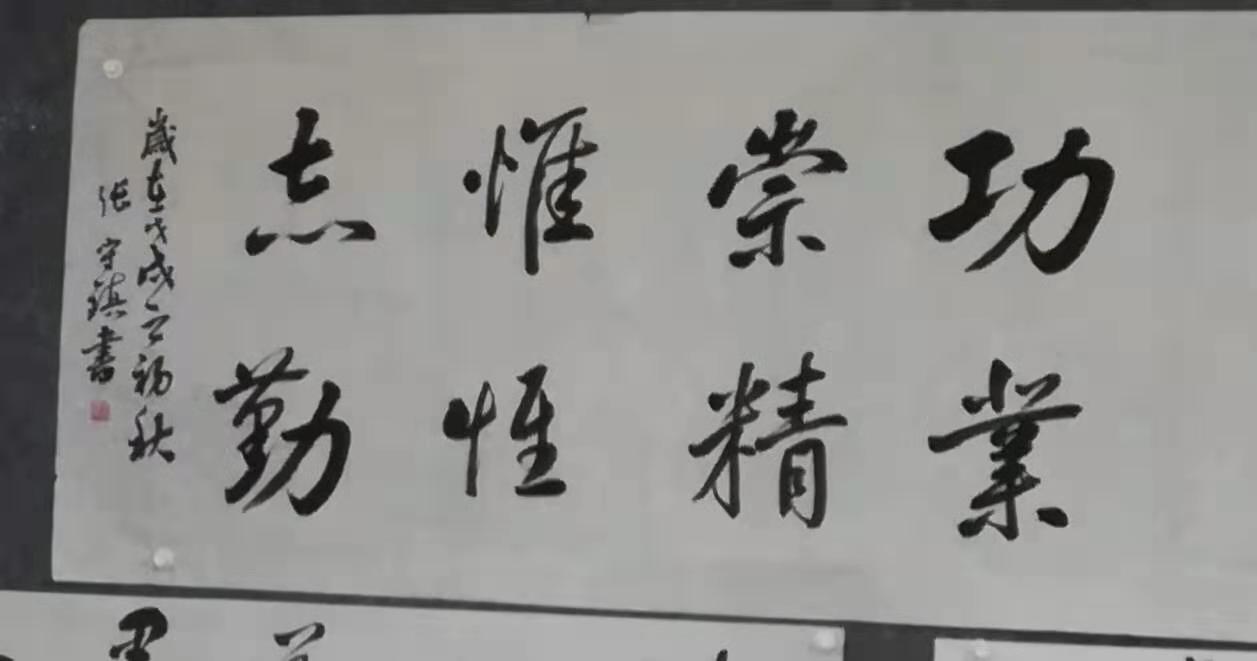 功崇惟志
業精惟勤
歲在戊戌之初秋
张守鎮書